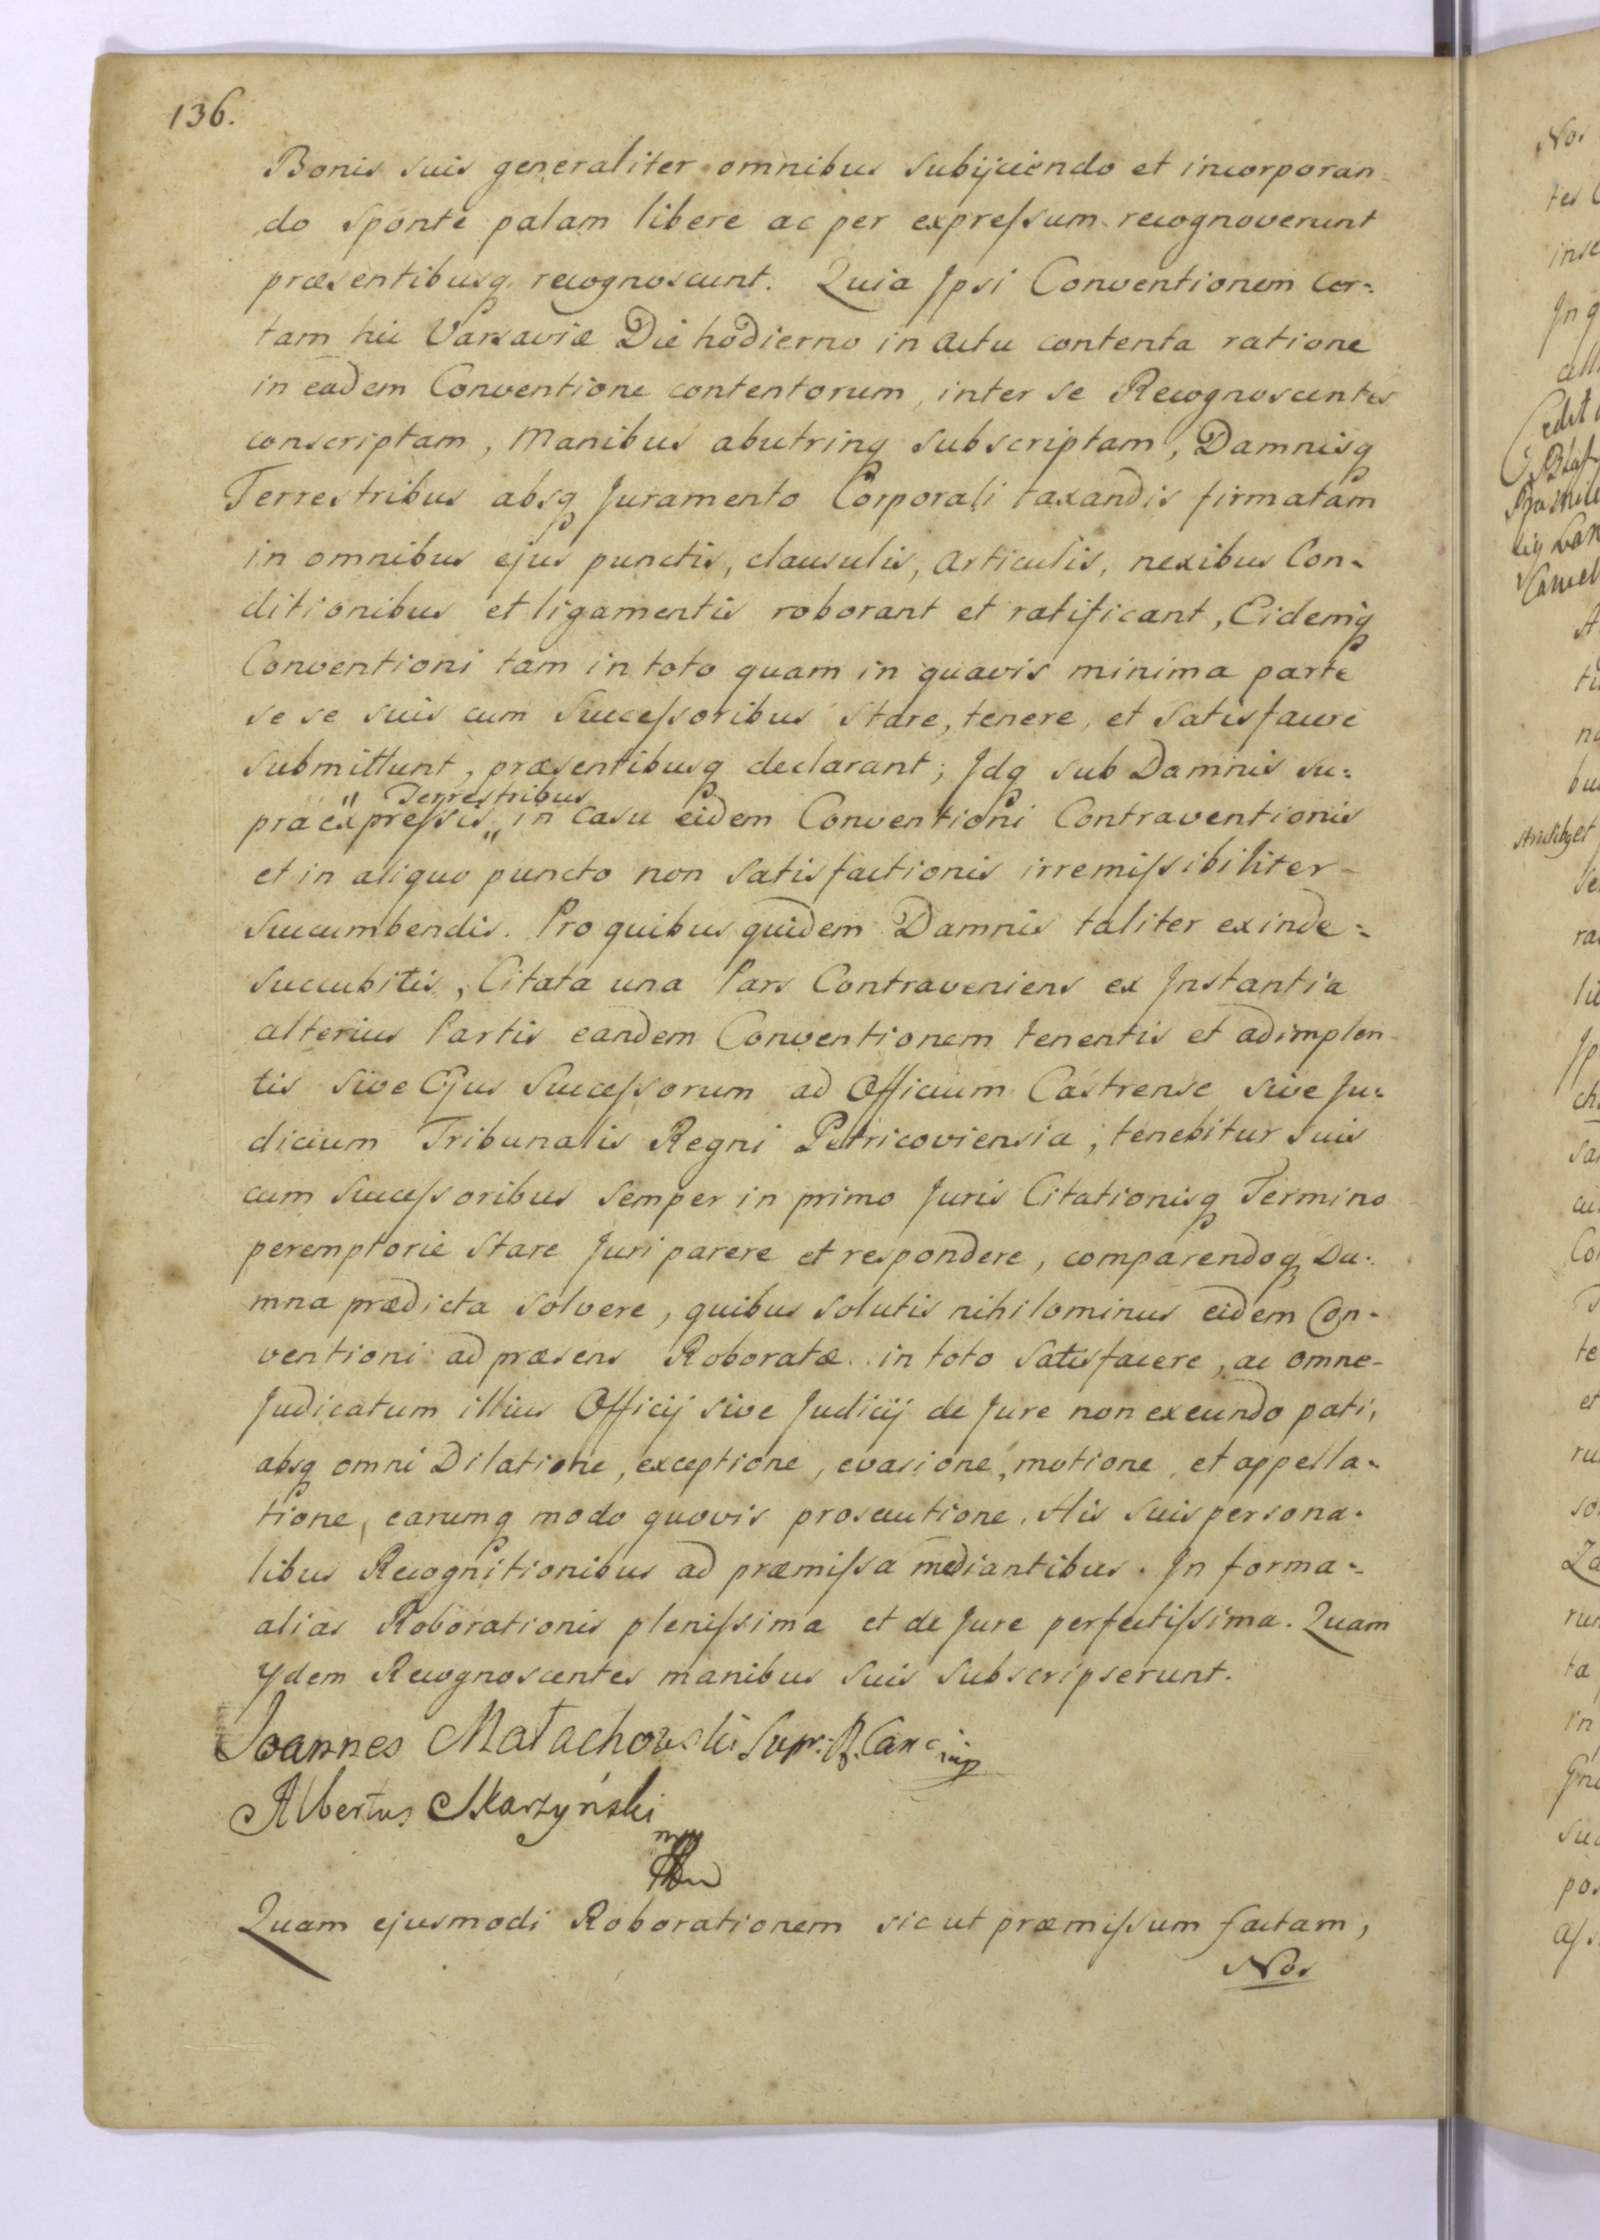 136.
Bonis suis generaliter omnibus subijciendo et incorporan-
do sponte palam libere ac per expreſsum recognoverunt
præsentibusq recognoscunt. Quia Jpsi Conventionem cer=
tam hic Varsaviæ Die hodierno in actu contenta ratione
in eadem Conventione contentorum, inter se Recognoscentes
conscriptam, Manibus abutrinq subscriptam, Damnisq
Terrestribus absq Juramento Corporali taxandis firmatam
in omnibus ejus punctis, clausulis, articulis, nexibus Con=
ditionibus et ligamentis roborant et ratificant, Eidemq
Conventioni tam in toto quam in quavis minima parte
se se suis cum Succeſsoribus Stare, tenere, et Satisfacere
submittunt, præsentibusq declarant; Jdq sub Damnis su=
" Terrestribus
præexpreſsis " in casu eidem Conventioni Contraventionis
et in aliquo puncto non Satisfactionis irremiſsibiliter-
Succumbendis. Pro quibus quidem Damnis taliter exinde=
Succubitis, Citata una Pars Contraveniens ex Jnstantia
alterius Partis eandem Conventionem tenentis et adimplen-
tis sive Ejus Succeſsorum ad Officium Castrense sive Ju=
dicium Tribunalis Regni Petricoviensia, tenebitur suis
cum Succeſsoribus Semper in primo Juris Citationisq Termino
peremptorie Stare Juri parere et respondere, comparendoq Da=
mna prædicta Solvere, quibus solutis nihilominus eidem Con=
ventioni ad præsens Roboratæ in toto Satisfacere, ac omne-
Judicatum illius Officij sive Judicij de Jure non exeundo pati,
absq omni Dilatione, exceptione, evasione, motione, et appella=
tione, earumq modo quovis prosecutione. His suis persona=
libus Recognitionibus ad præmiſsa mediantibus. Jn forma=
alias Roborationis pleniſsima et de Jure perfectiſsima. Quam
Ydem Recognoscentes manibus suis subscripserunt.
Joannes Małachowski Supr: R. Canc mp
Albertus Skarzyński
mp
Quam ejusmodi Roborationem sicut præmiſsum factam,
Nos